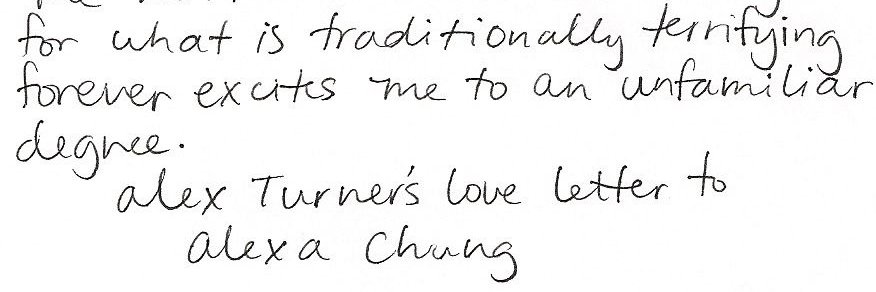 for what is traditionally terrifying
forever excites me to an unfamiliar
degree.
alex Turner's love letter to
alexa Chung